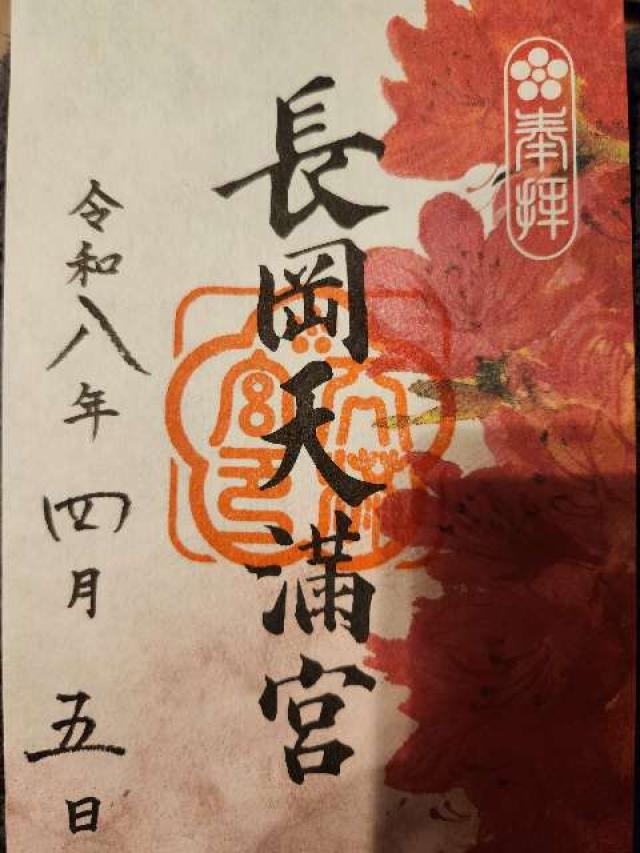 奉拝
長岡天満宮
令和八年四月五日